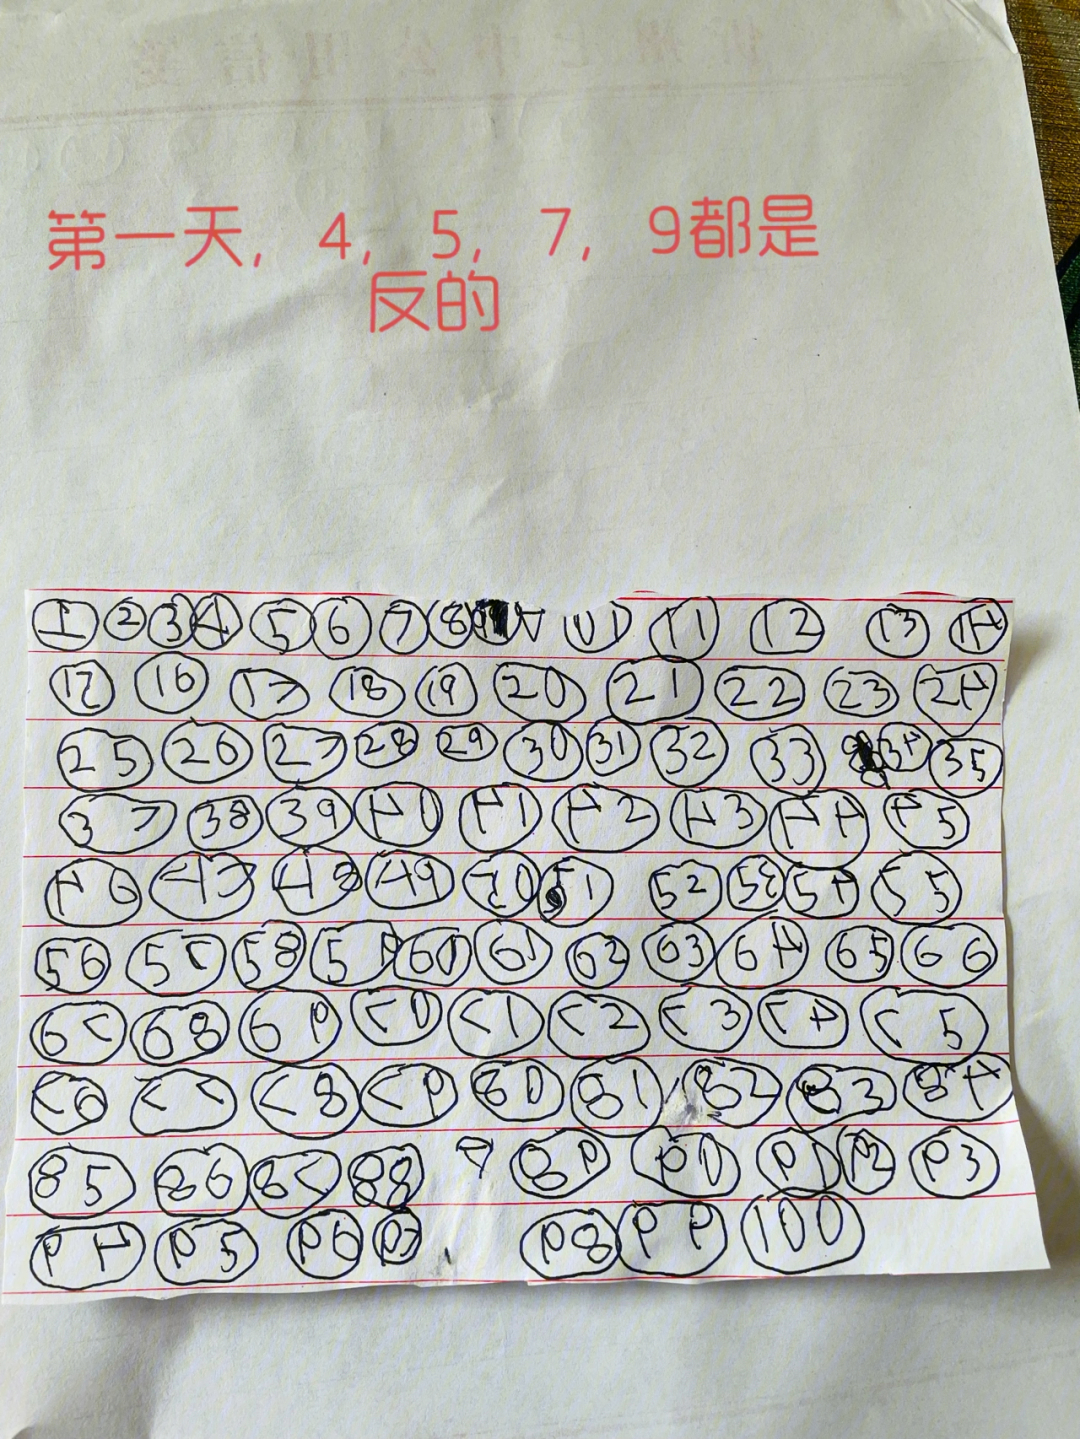 第一天，4，5，7，9都是
反的
1 2 3 4 5 6 7 8 10 11 12 13 14
15 16 17 18 19 20 21 22 23 24
25 26 27 28 29 30 31 32 33 34 35
37 38 39 40 41 42 43 44 45
46 47 48 49 50 51 52 53 54 55
56 57 58 59 60 61 62 63 64 65 66
67 68 69 70 71 72 73 74 75
76 77 78 79 80 81 82 83 84
85 86 87 88 9 89 90 91 92 93
94 95 96 97 98 99 100